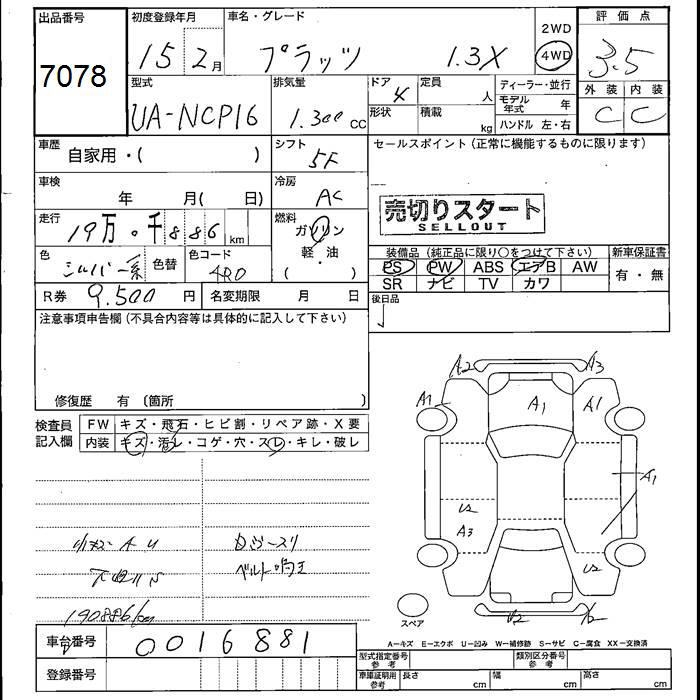 出品番号
7078
初度登録年月
15 2月
車名・グレード
プラッツ 1.3X
2WD
4WD
評価点
3.5
外装 内装
C C
型式
UA-NCP16
排気量
1.300 cc
ドア 4
形状
定員 人
積載 kg
ディーラー・並行
モデル年式 年
ハンドル 左・右
車歴
自家用・( )
シフト
5F
セールスポイント(正常に機能するものに限ります)
車検
年 月( 日)
冷房
AC
売切りスタート
SELLOUT
走行
19万・千886km
燃料
ガソリン
軽・油
( ・ )
色
シルバー系
色替
色コード
4R0
装備品(純正品に限り○をつけて下さい)
PS PW ABS エアB AW
SR ナビ TV カワ
新車保証書
有・無
R券 9.500 円
名変期限 月 日
後日品
注意事項申告欄(不具合内容等は具体的に記入して下さい)
修復歴 有 〔箇所 〕
検査員記入欄
FW キズ・飛石・ヒビ割・リペア跡・X要
内装 キズ・汚レ・コゲ・穴・スレ・キレ・破レ
A2 A3
A1 A1 A1
A1
U2
A3
U2
スペア
小キズ A U
ベルト鳴き
190886km
車台番号
0016881
登録番号
A−キズ E−エクボ U−凹み W−補修跡 S−サビ C−腐食 XX−交換済
型式指定番号 参考
類別区分番号 参考
車庫証明用 参考
長さ cm 幅 cm 高さ cm